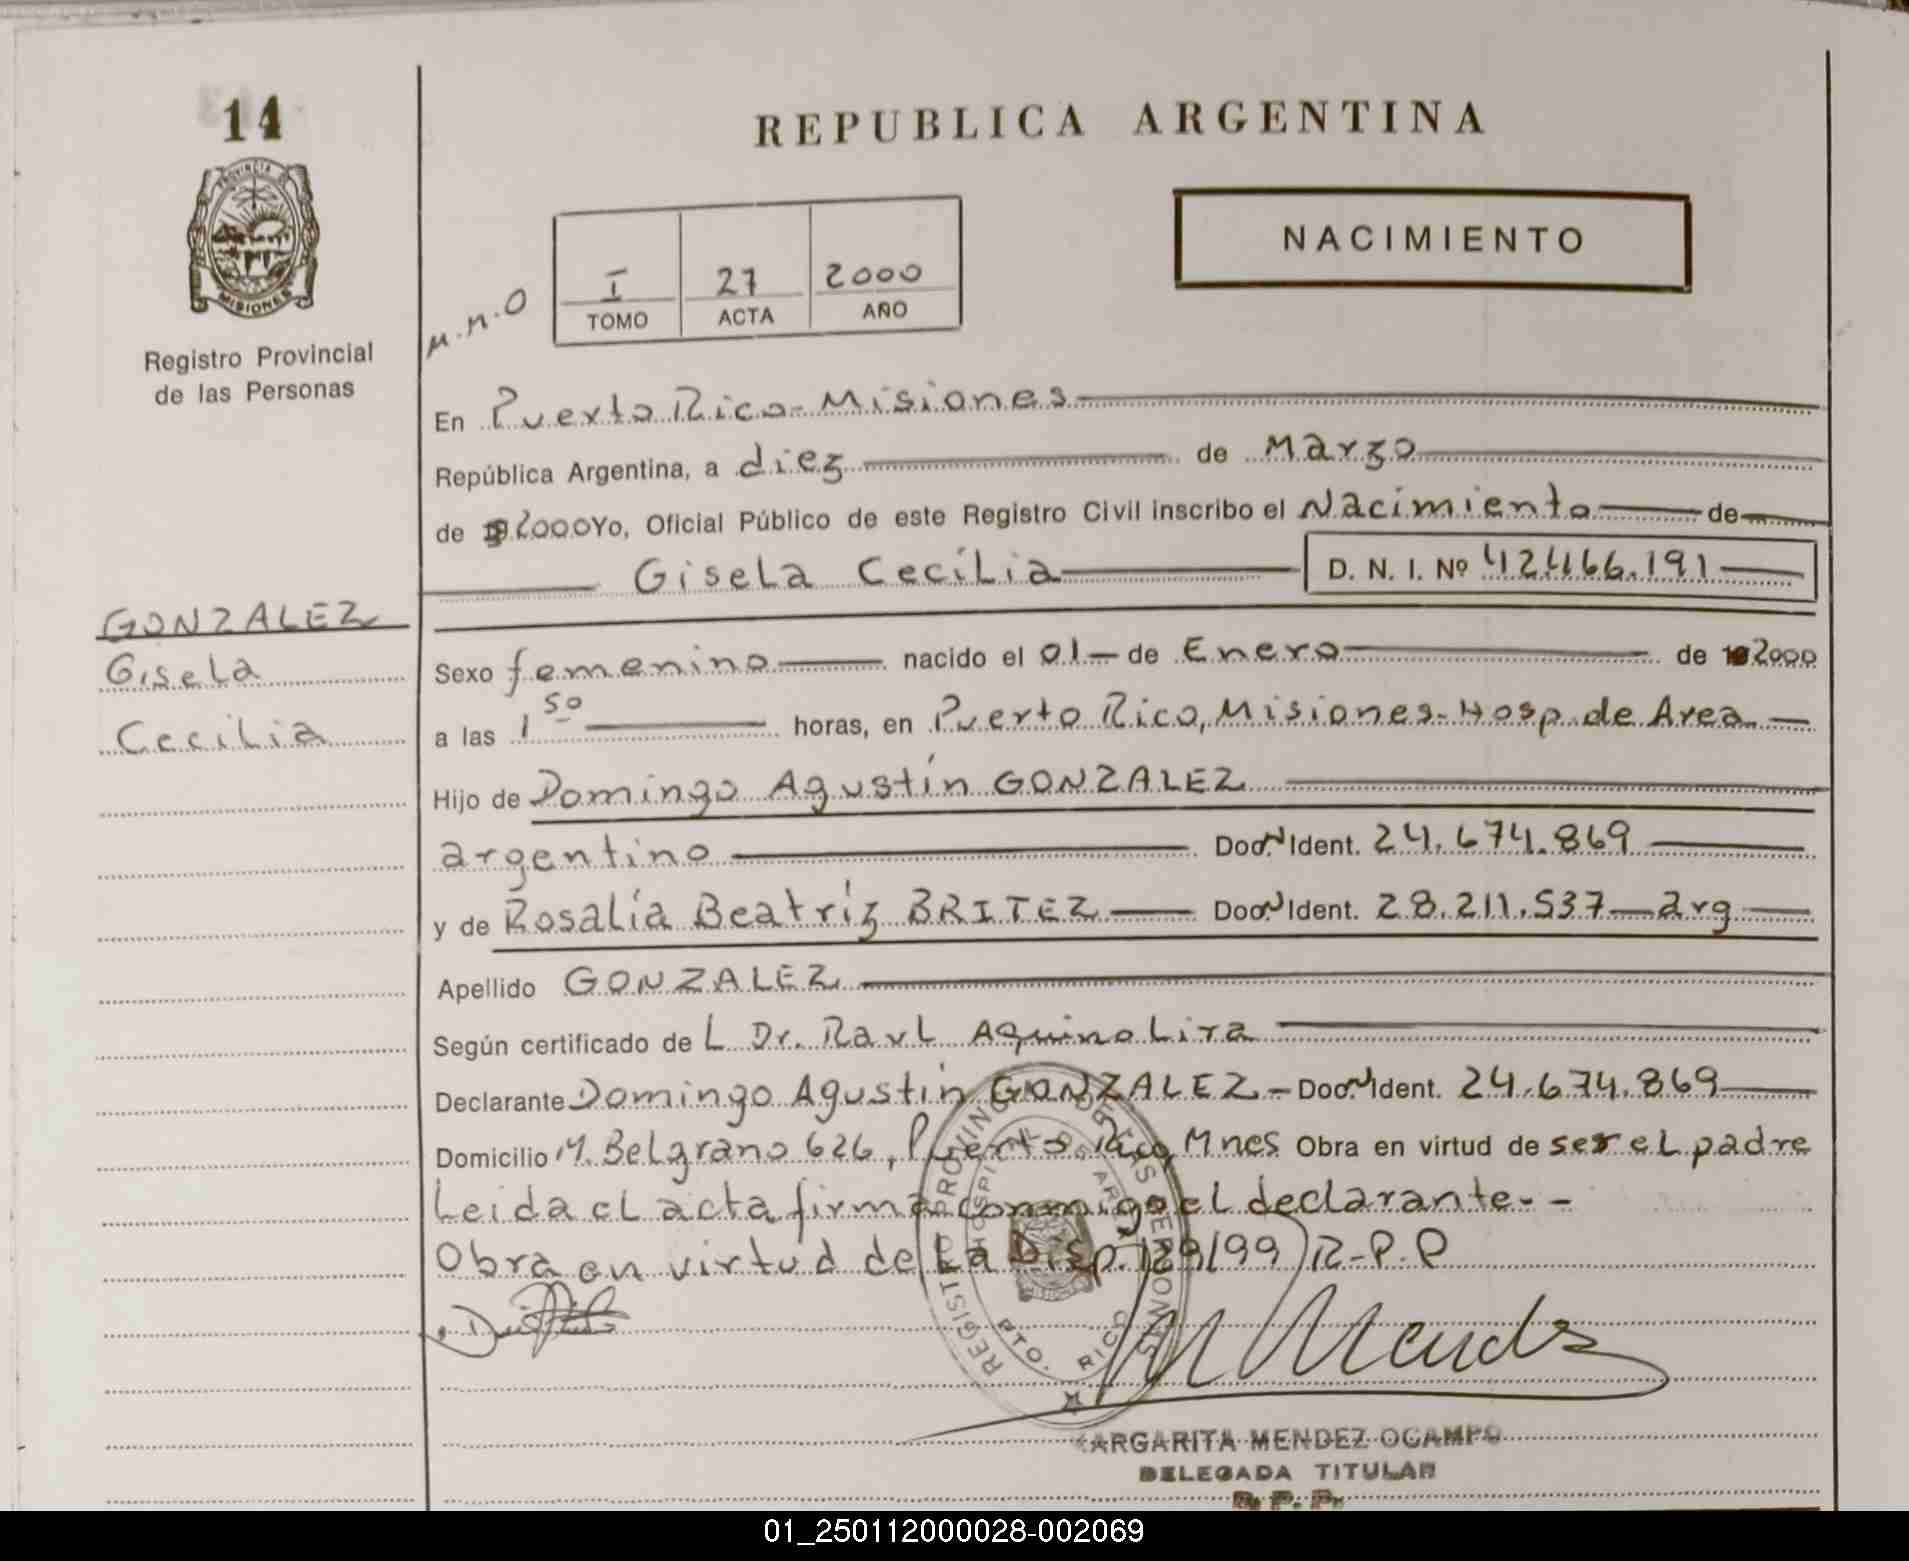 14
PROVINCIA DE
MISIONES
Registro Provincial
de las Personas
REPUBLICA ARGENTINA
NACIMIENTO
I 27 2000
TOMO ACTA AÑO
M.N.O
En Puerto Rico - Misiones
República Argentina, a diez de Marzo
de 2000 Yo, Oficial Público de este Registro Civil inscribo el Nacimiento de
Gisela Cecilia D. N. I. Nº 42.466.191
GONZALEZ
Gisela
Cecilia
Sexo femenino nacido el 01 de Enero de 2000
a las 1 50 horas, en Puerto Rico, Misiones - Hosp. de Area
Hijo de Domingo Agustín GONZALEZ
argentino Doc. N Ident. 24.674.869
y de Rosalía Beatríz BRITEZ Doc. N Ident. 28.211.537 - arg
Apellido GONZALEZ
Según certificado de L Dr. Raul Aquino Lira
Declarante Domingo Agustin GONZALEZ - Doc. N Ident. 24.674.869
Domicilio M. Belgrano 626, Puerto Rico, Mnes Obra en virtud de ser el padre
Leida el acta firma conmigo el declarante - -
Obra en virtud de La Disp. 129/99 R-P.P
REGISTRO PROVINCIAL DE LAS PERSONAS
HOSPITAL DE AREA
PTO. RICO
M Mendez
MARGARITA MENDEZ OCAMPO
DELEGADA TITULAR
R. P. P.
01_250112000028-002069